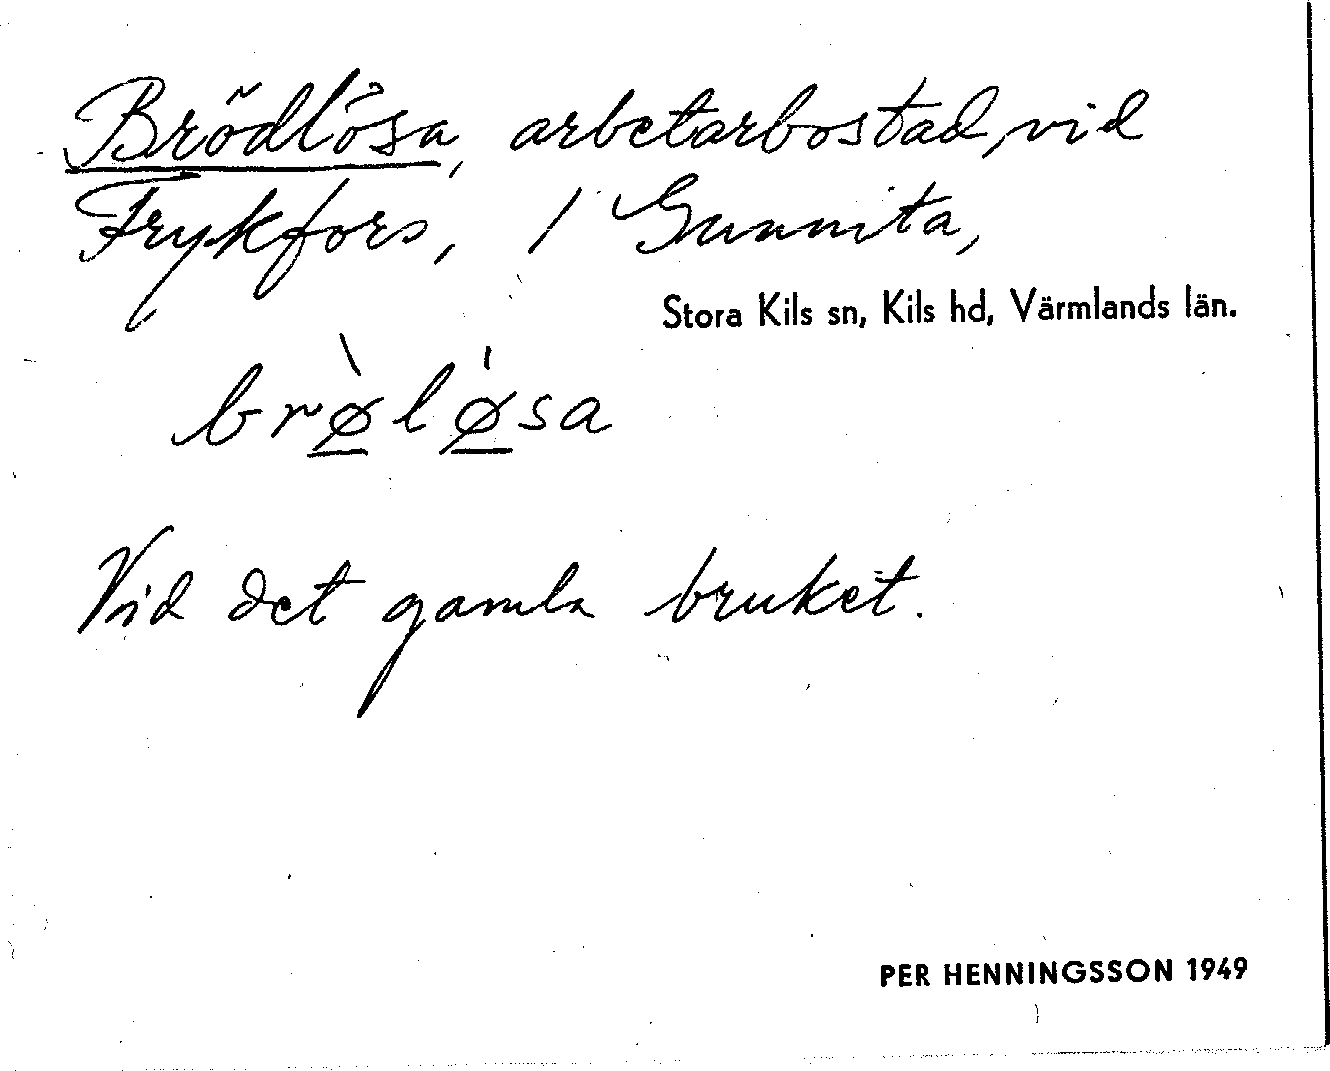 Brödlösa, arbetarbostad, vid
Frykfors, / Gunnita,
Stora Kils sn, Kils hd, Värmlands län.
brø̲̀lǿ̲sa
Vid det gamla bruket.
PER HENNINGSSON 1949